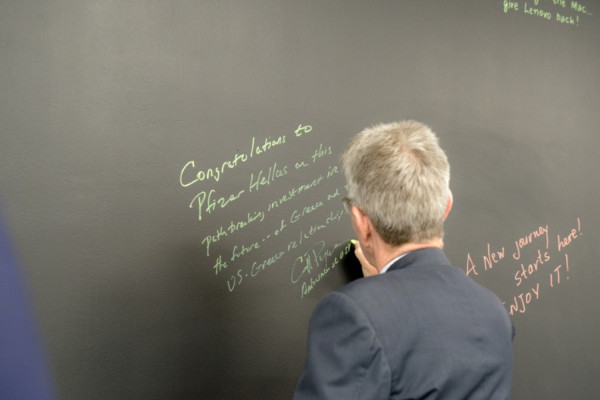 the Mac...
give Lenovo back!
Congratulations to
Pfizer Hellas on this
pathbreaking investment in
the future of Greece and
US-Greece relationship
A New journey
starts here!
ENJOY IT!